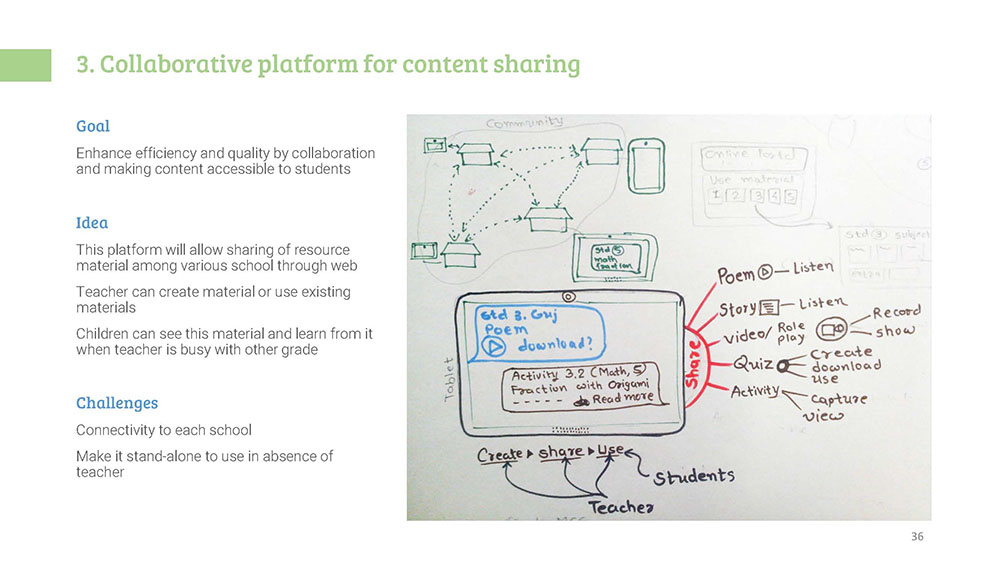 3. Collaborative platform for content sharing
Goal
Enhance efficiency and quality by collaboration
and making content accessible to students
Idea
This platform will allow sharing of resource
material among various school through web
Teacher can create material or use existing
materials
Children can see this material and learn from it
when teacher is busy with other grade
Challenges
Connectivity to each school
Make it stand-alone to use in absence of
teacher
Community
use material
1 2 3 4 5
std 3 subject
std 5
math
fraction
Tablet
Std 3. Guj
Poem
download?
Activity 3.2 (Math, 5)
Fraction with Origami
- - - - - Read more
Share
Poem - Listen
Story - Listen
video/ Role
play
Record
show
Quiz
Create
download
use
Activity
capture
view
Create share Use
Students
Teacher
36